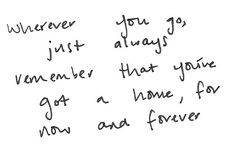 Wherever you go,
just always
remember that you've
got a home, for
now and forever